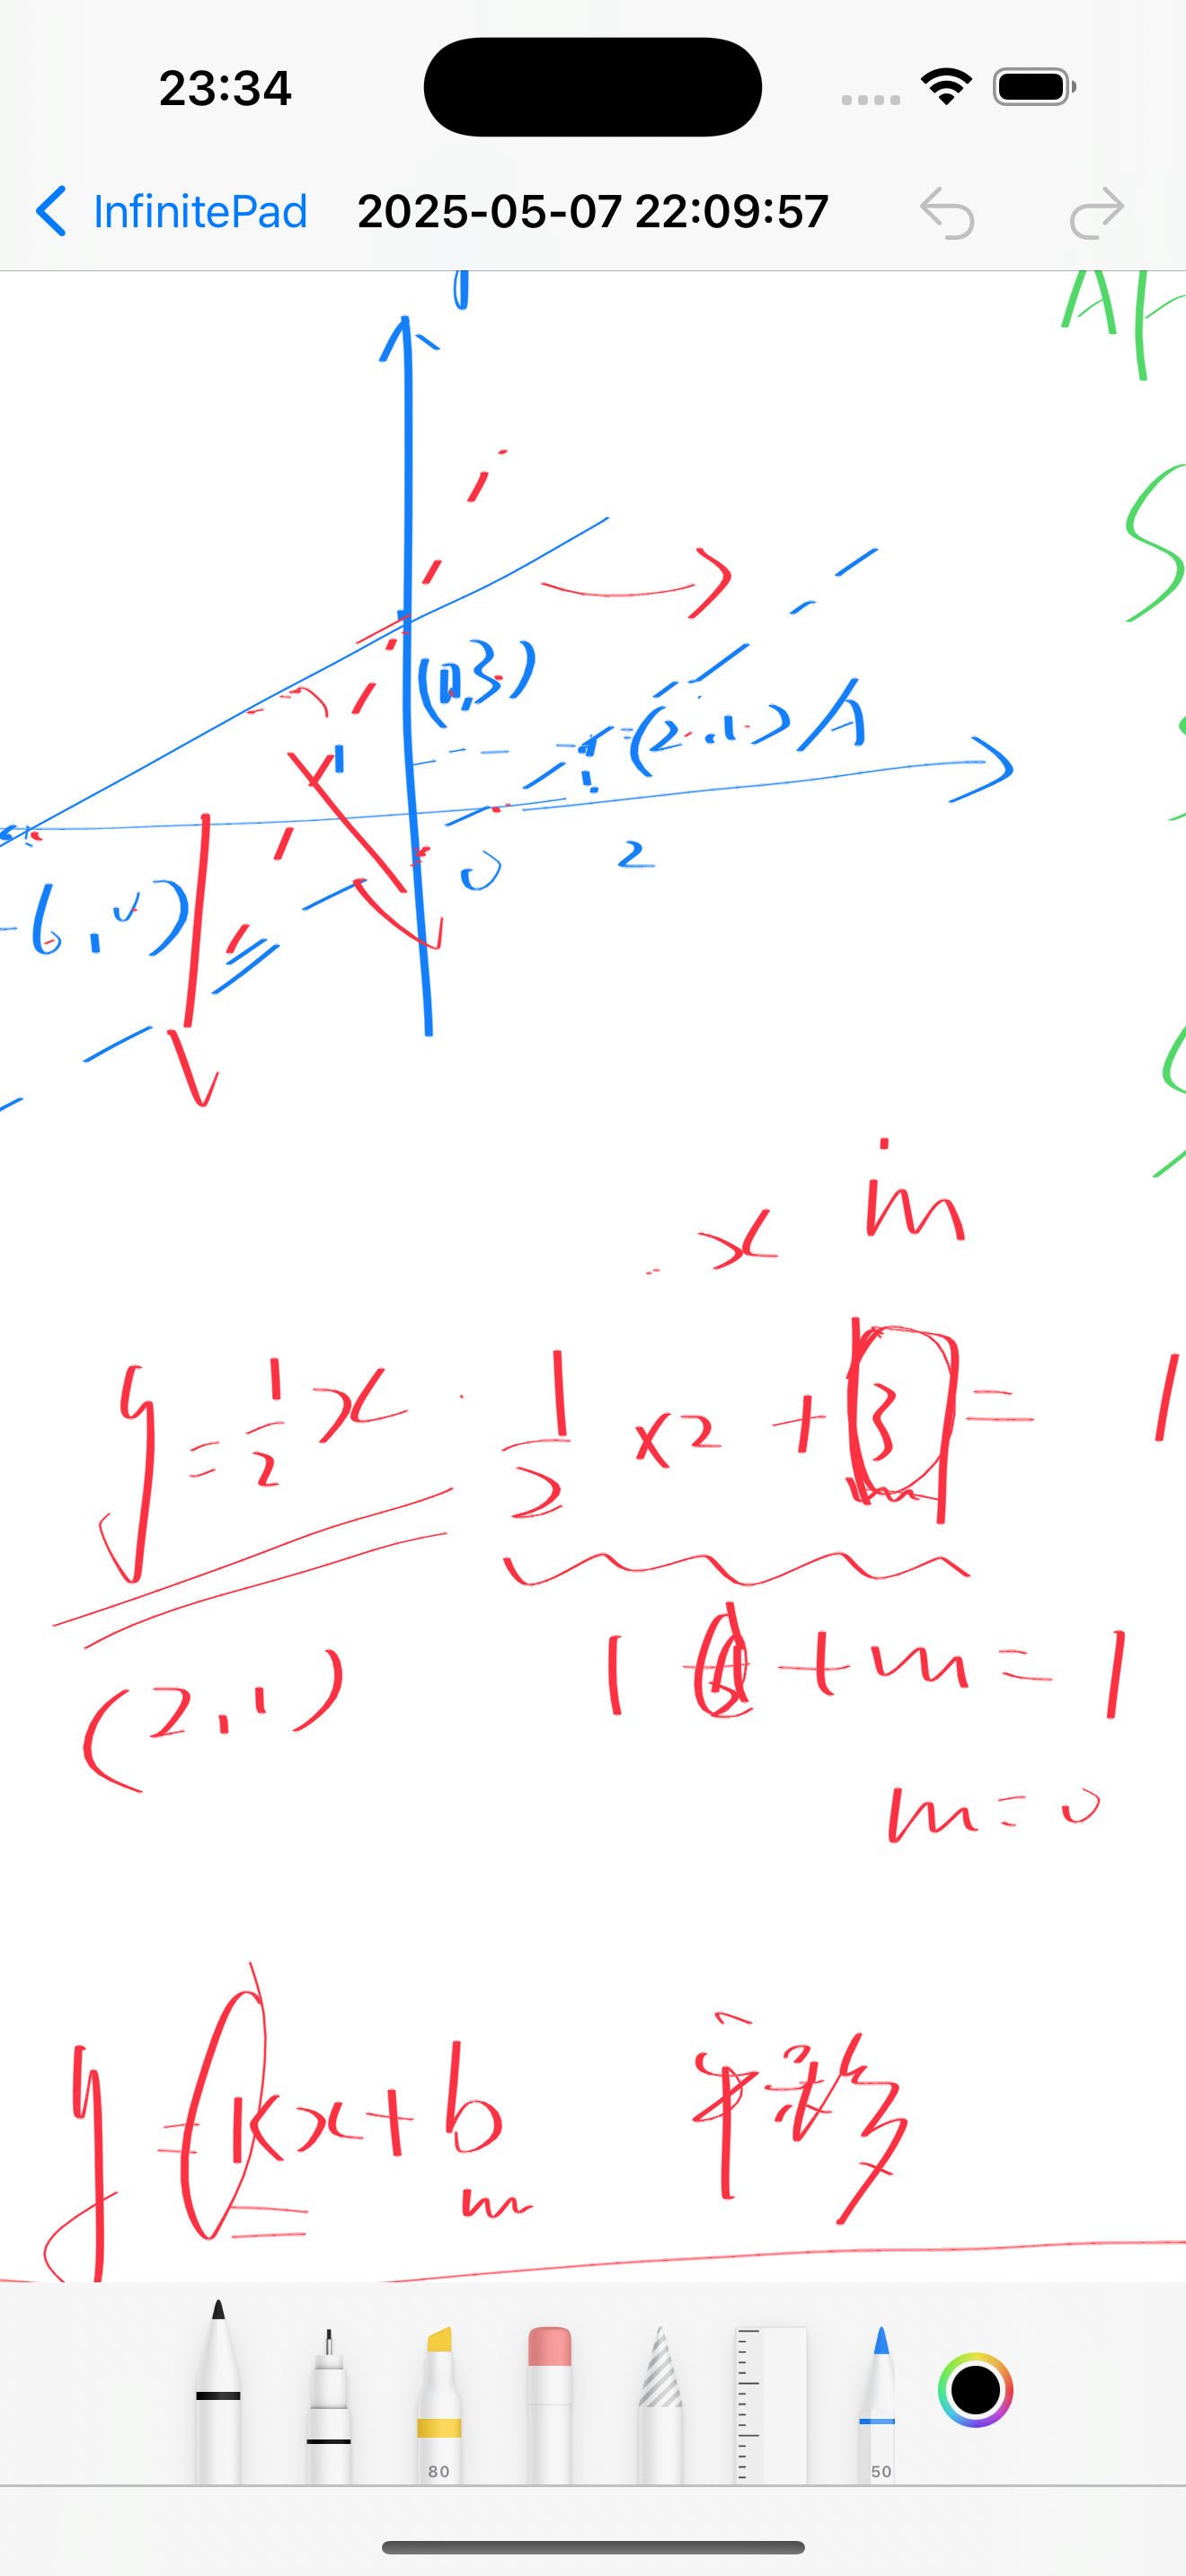 23:34
InfinitePad 2025-05-07 22:09:57
(0,3)
(2,1) A
1
-6,0)
0
2
x m
y=1/2x 1/2 x2 +3= 1
(2,1) 1 +m=1
m=0
y=kx+b 平移
m
80
50